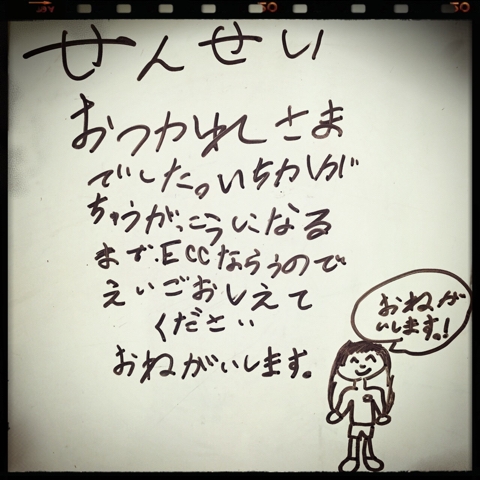 せんせい
おつかれさま
でした。いちかが
ちゅうがっこうになる
まで.ECCならうので
えいごおしえて
ください
おねがいします。
おねが
いします。!